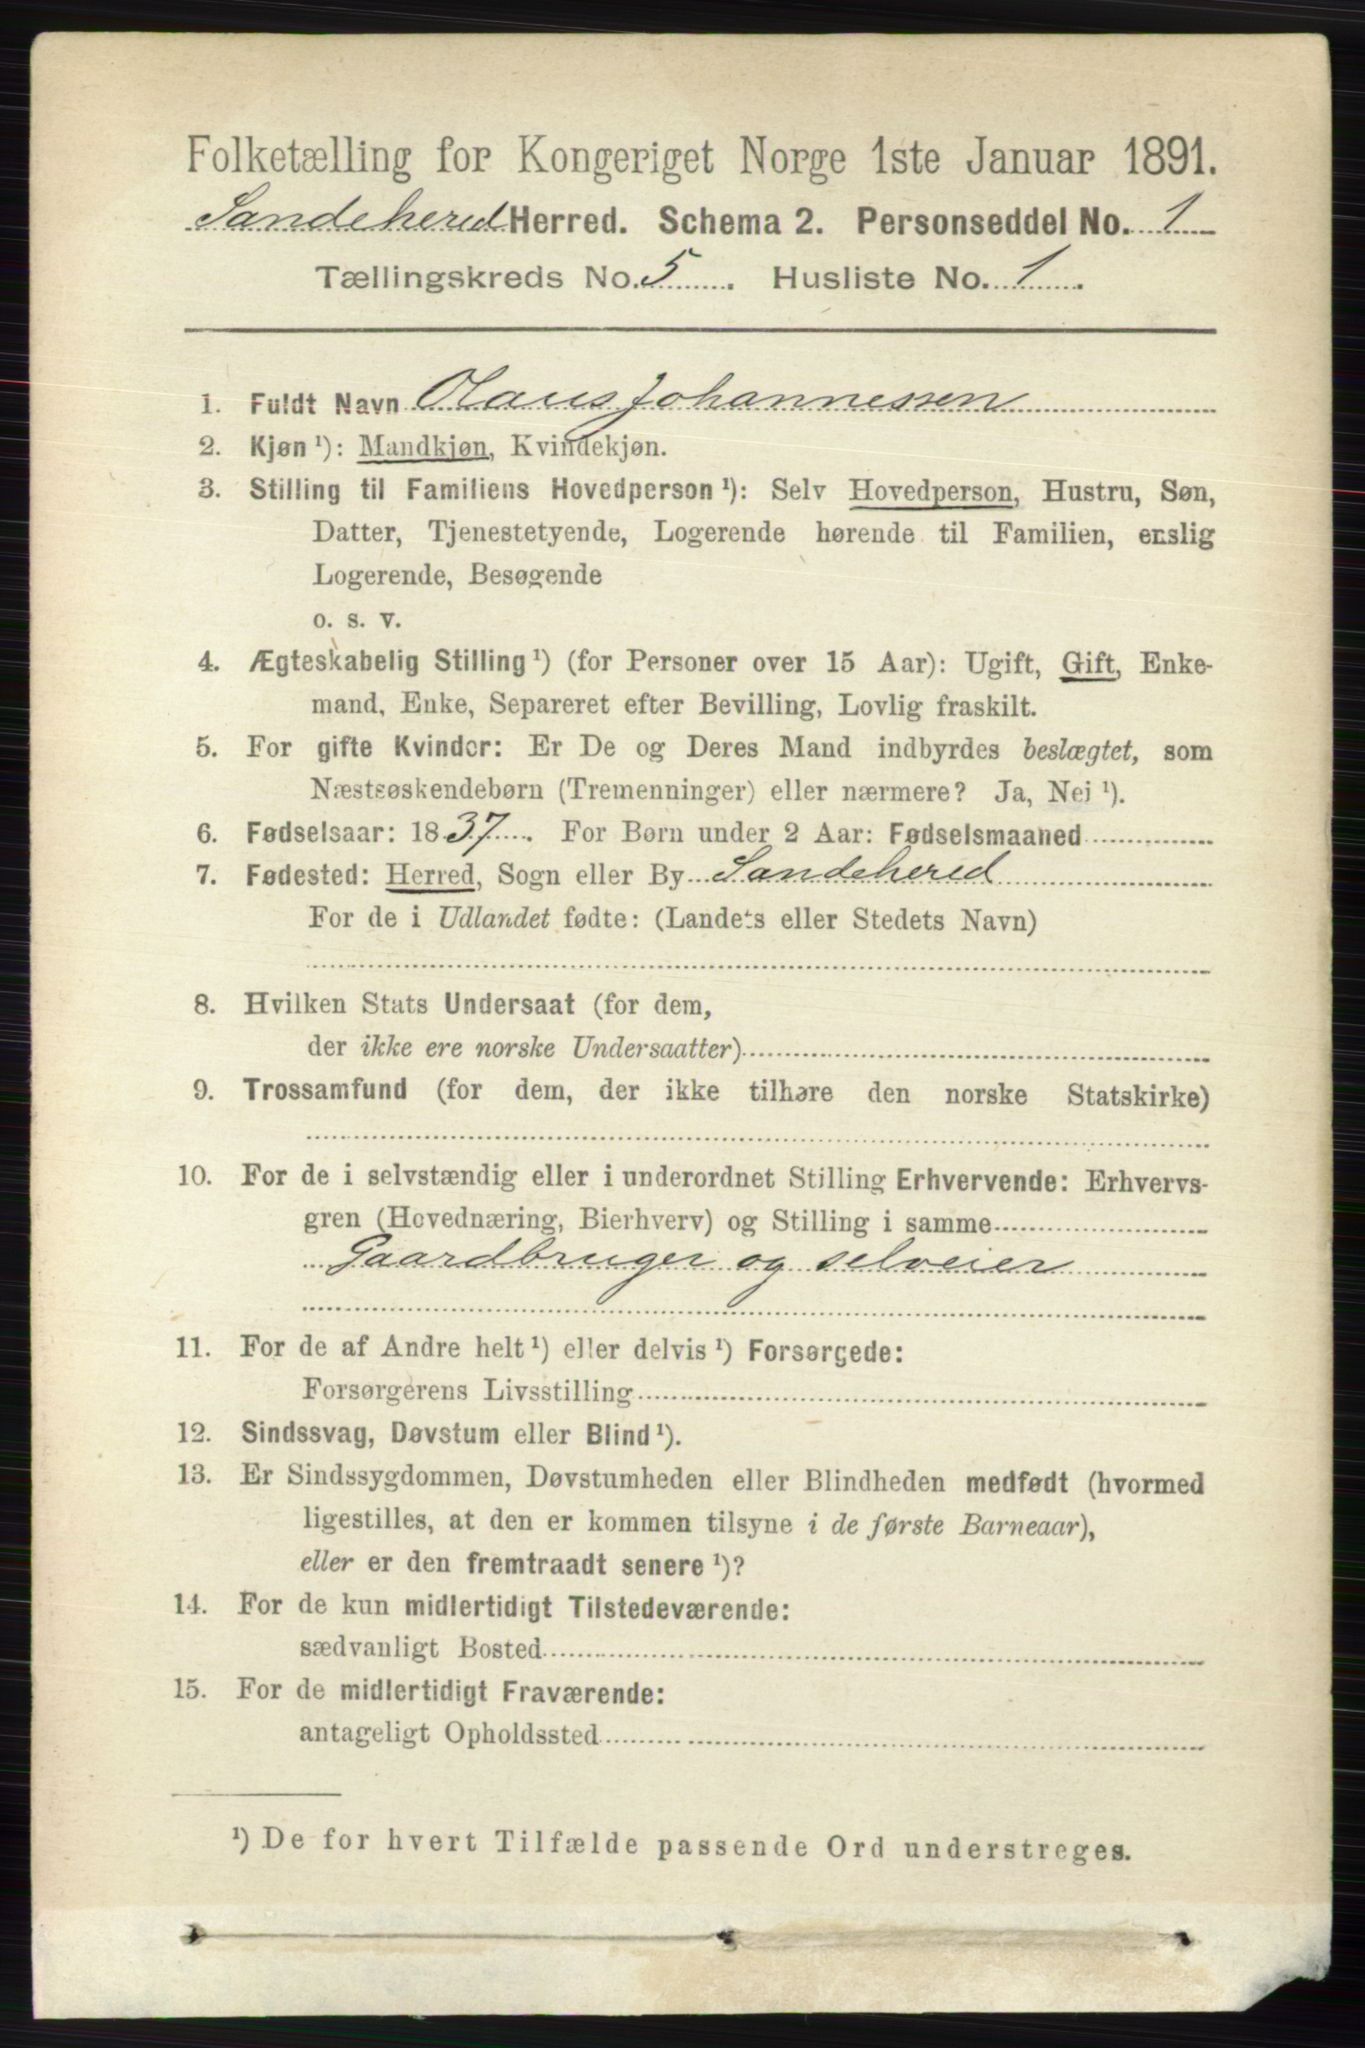 Folketælling for Kongeriget Norge 1ste Januar 1891.
Sandehered Herred. Schema 2. Personseddel No. 1
Tællingskreds No. 5. Husliste No. 1.
1. Fuldt Navn Olaus Johannessen
2. Kjøn ¹): Mandkjøn, Kvindekjøn.
3. Stilling til Familiens Hovedperson ¹): Selv Hovedperson, Hustru, Søn,
Datter, Tjenestetyende, Logerende hørende til Familien, enslig
Logerende, Besøgende
o. s. v.
4. Ægteskabelig Stilling ¹) (for Personer over 15 Aar): Ugift, Gift, Enke-
mand, Enke, Separeret efter Bevilling, Lovlig fraskilt.
5. For gifte Kvinder: Er De og Deres Mand indbyrdes beslægtet, som
Næstsøskendebørn (Tremenninger) eller nærmere? Ja, Nei ¹).
6. Fødselsaar: 1837. For Børn under 2 Aar: Fødselsmaaned
7. Fødested: Herred, Sogn eller By Sandehered
For de i Udlandet fødte: (Landets eller Stedets Navn)
8. Hvilken Stats Undersaat (for dem,
der ikke ere norske Undersaatter)
9. Trossamfund (for dem, der ikke tilhøre den norske Statskirke)
10. For de i selvstændig eller i underordnet Stilling Erhvervende: Erhvervs-
gren (Hovednæring, Bierhverv) og Stilling i samme
Gaardbruger og selveier
11. For de af Andre helt ¹) eller delvis ¹) Forsørgede:
Forsørgerens Livsstilling
12. Sindssvag, Døvstum eller Blind ¹).
13. Er Sindssygdommen, Døvstumheden eller Blindheden medfødt (hvormed
ligestilles, at den er kommen tilsyne i de første Barneaar),
eller er den fremtraadt senere ¹)?
14. For de kun midlertidigt Tilstedeværende:
sædvanligt Bosted
15. For de midlertidigt Fraværende:
antageligt Opholdssted
¹) De for hvert Tilfælde passende Ord understreges.